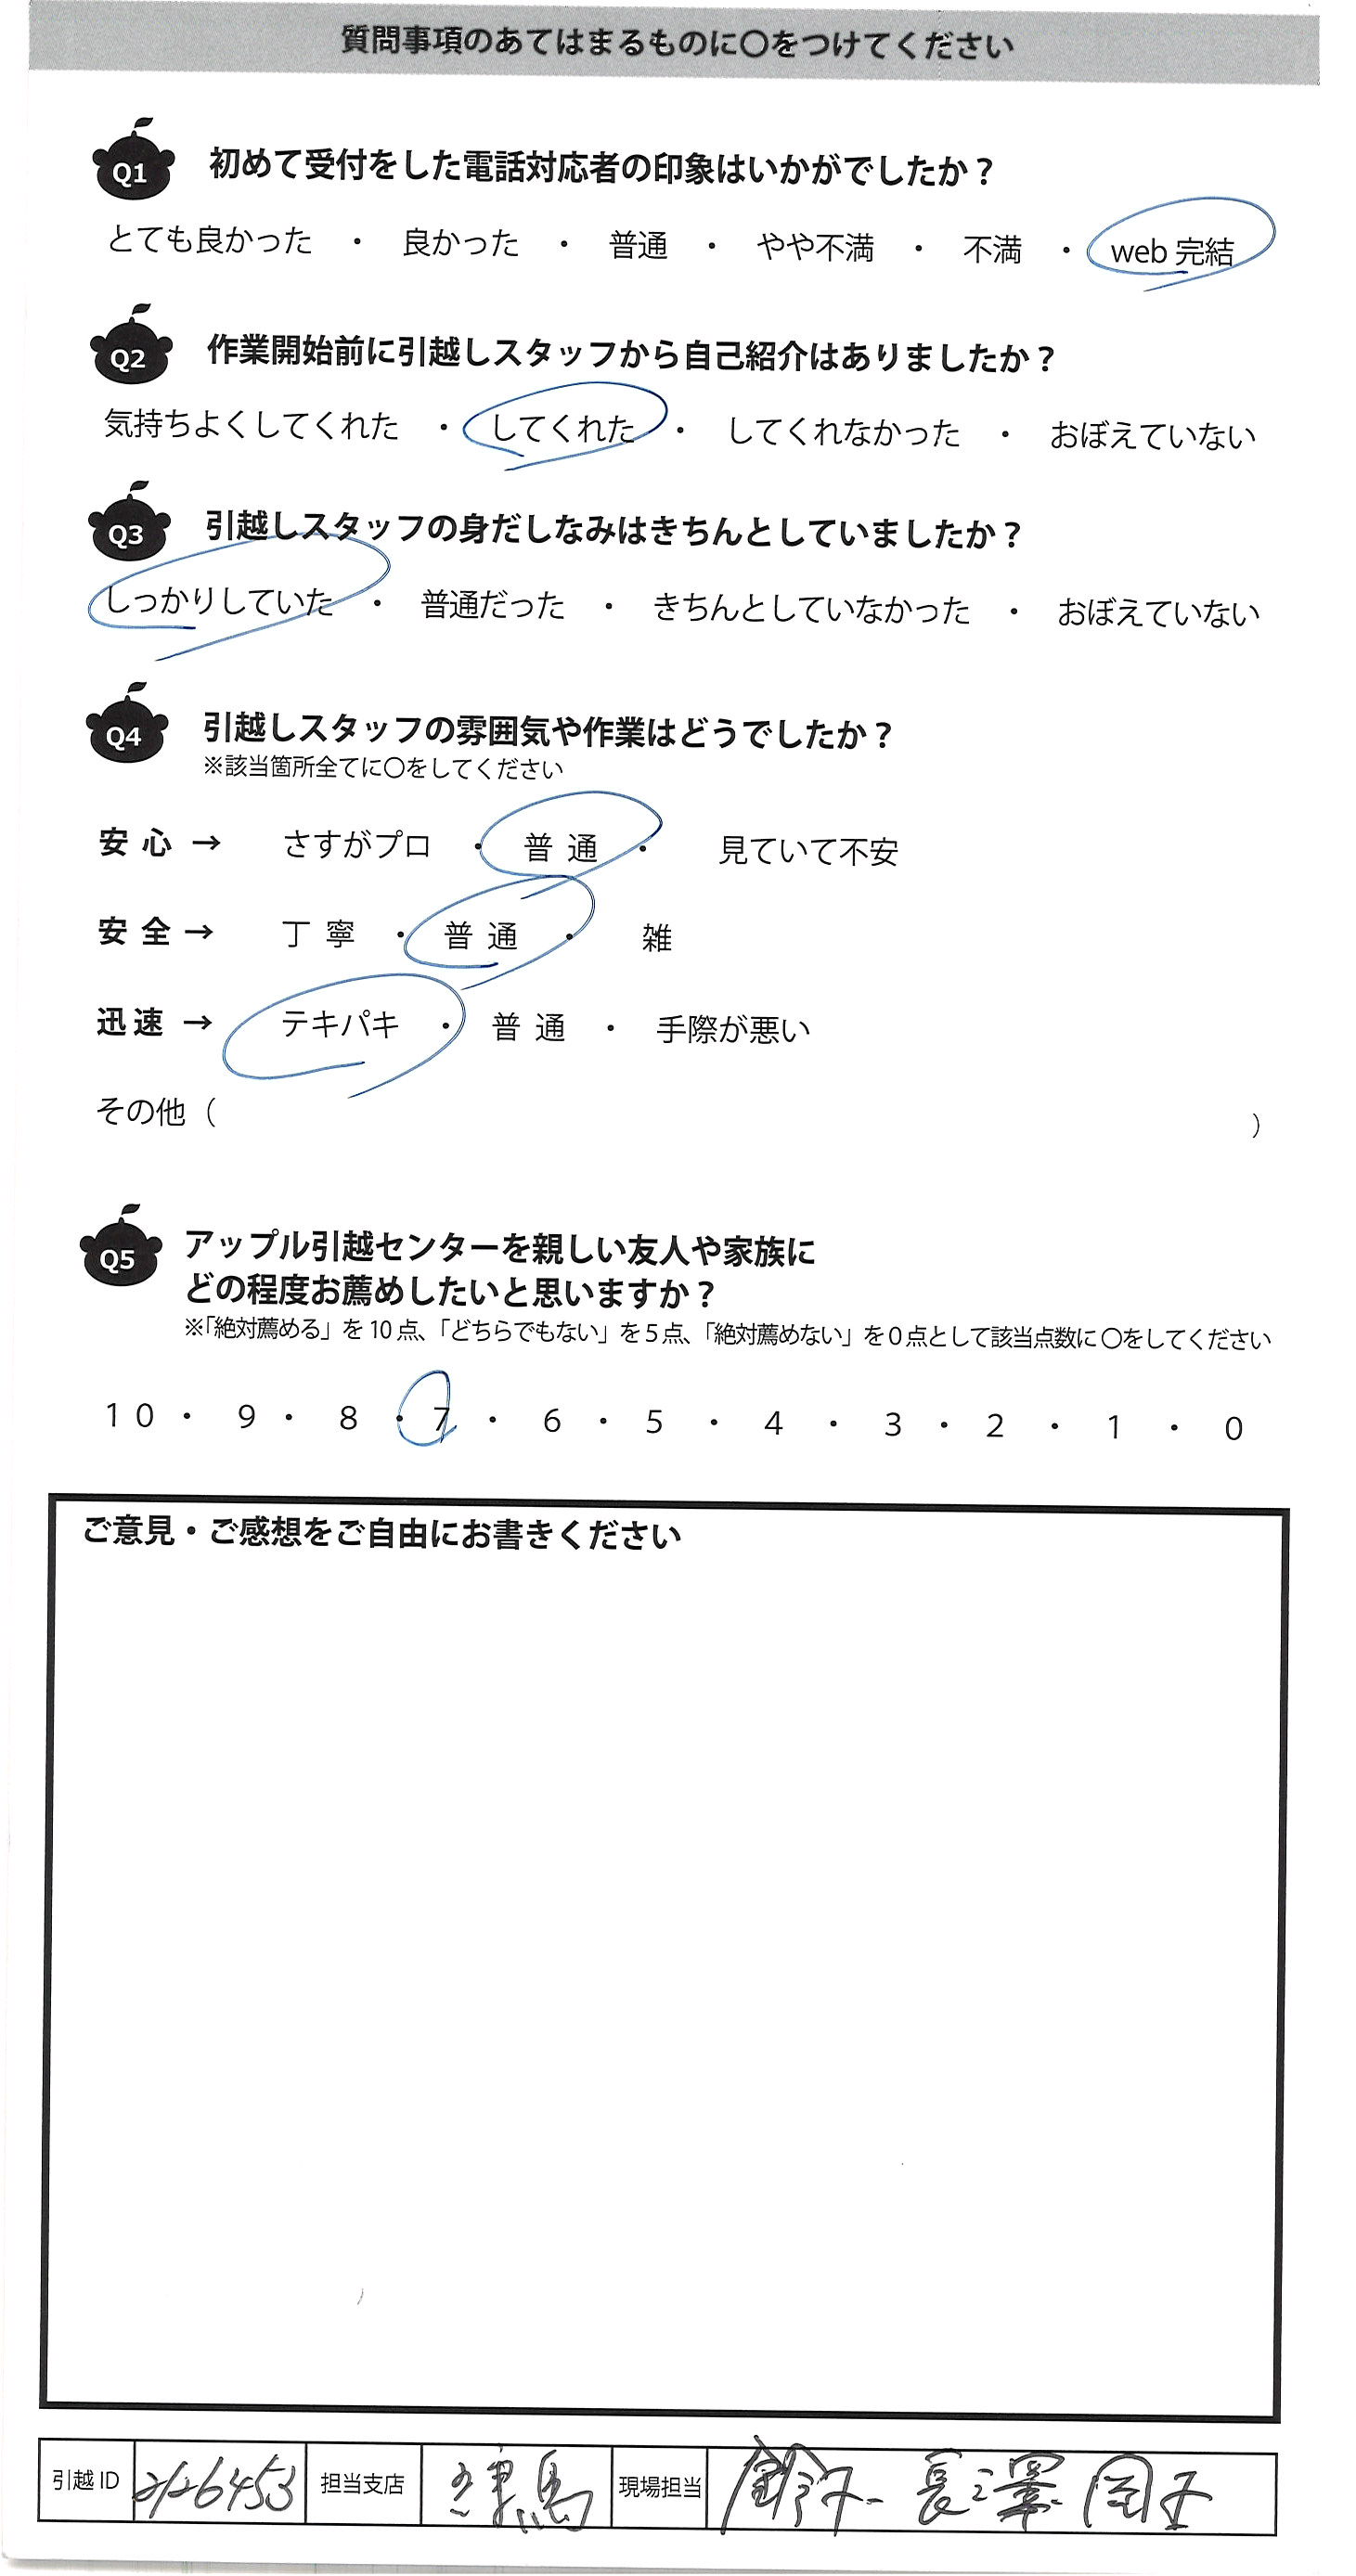 質問事項のあてはまるものに〇をつけてください
Q1 初めて受付をした電話対応者の印象はいかがでしたか？
とても良かった ・ 良かった ・ 普通 ・ やや不満 ・ 不満 ・ web 完結
Q2 作業開始前に引越しスタッフから自己紹介はありましたか？
気持ちよくしてくれた ・ してくれた ・ してくれなかった ・ おぼえていない
Q3 引越しスタッフの身だしなみはきちんとしていましたか？
しっかりしていた ・ 普通だった ・ きちんとしていなかった ・ おぼえていない
Q4 引越しスタッフの雰囲気や作業はどうでしたか？
※該当箇所全てに〇をしてください
安 心 → さすがプロ ・ 普 通 ・ 見ていて不安
安 全 → 丁 寧 ・ 普 通 ・ 雑
迅 速 → テキパキ ・ 普 通 ・ 手際が悪い
その他（ ）
Q5 アップル引越センターを親しい友人や家族に
どの程度お薦めしたいと思いますか？
※「絶対薦める」を 10 点、「どちらでもない」を 5 点、「絶対薦めない」を 0 点として該当点数に 〇をしてください
10 ・ 9 ・ 8 ・ 7 ・ 6 ・ 5 ・ 4 ・ 3 ・ 2 ・ 1 ・ 0
ご意見・ご感想をご自由にお書きください
引越 ID 2126453 担当支店 練馬 現場担当 鈴木 長澤